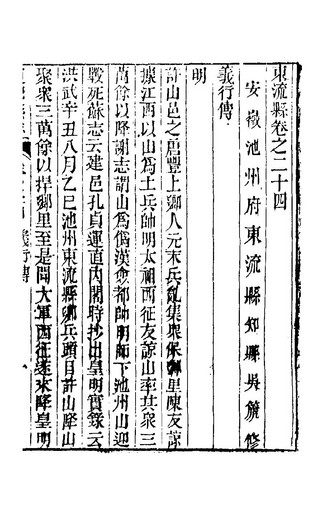 東流縣卷之二十四
安徽池州府東流縣知縣吳箎修
義行傳
明
許山邑之唐豐上鄉人元末兵亂集衆保鄉里陳友諒
據江西以山為土兵帥明太祖西征友諒山率其衆三
萬餘以降謝志謂山為偽漢僉都帥明師下池州山迎
戰死蘇志云建邑孔貞運直內閣時抄出皇明實錄云
洪武辛丑八月乙巳池州東流縣鄉兵頭目許山降山
聚衆三萬餘以捍鄉里至是聞大軍西征遂來降皇明
義行傳